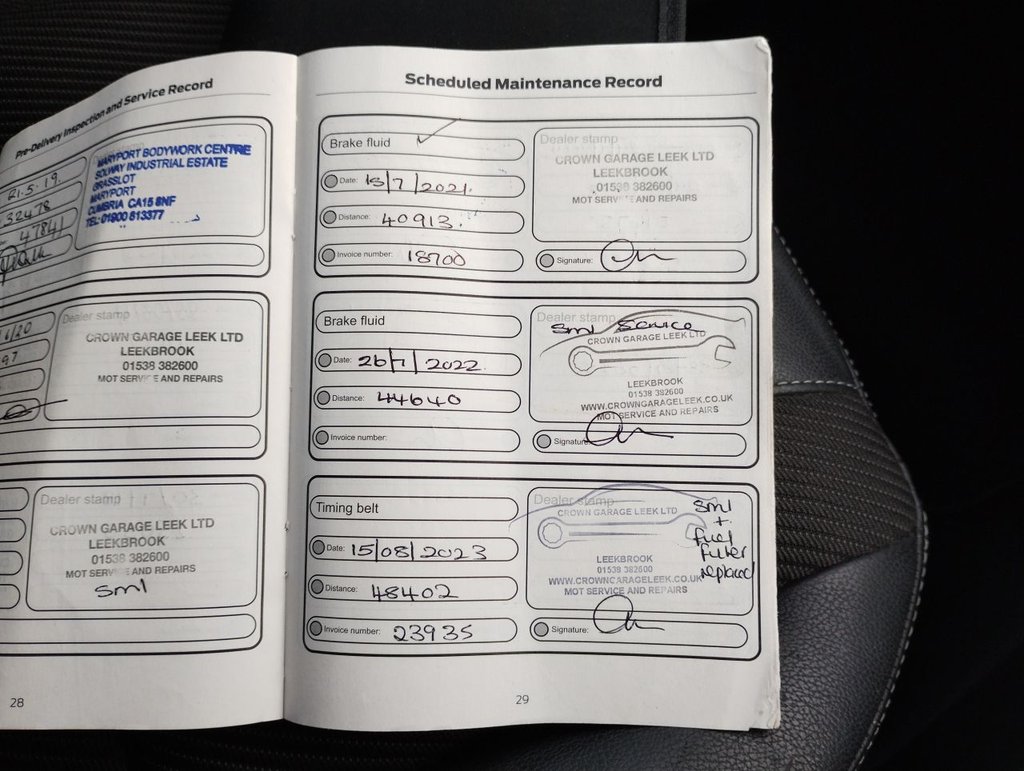 Pre-Delivery Inspection and Service Record
21.5.19.
32478
4784
MARYPORT BODYWORK CENTRE
SOLWAY INDUSTRIAL ESTATE
GRASSLOT
MARYPORT
CUMBRIA CA15 8NF
TEL: 01900 813377
6/20
97
Dealer stamp
CROWN GARAGE LEEK LTD
LEEKBROOK
01538 382600
MOT SERVICE AND REPAIRS
Dealer stamp
CROWN GARAGE LEEK LTD
LEEKBROOK
01538 382600
MOT SERVICE AND REPAIRS
Sml
28
Scheduled Maintenance Record
Brake fluid ✓
Date: 15/7/2021.
Distance: 40913.
Invoice number: 18700
Dealer stamp
CROWN GARAGE LEEK LTD
LEEKBROOK
01538 382600
MOT SERVICE AND REPAIRS
Signature:
Brake fluid
Date: 26/7/2022.
Distance: 44640
Invoice number:
Dealer stamp
Sml Service
CROWN GARAGE LEEK LTD
LEEKBROOK
01538 382600
WWW.CROWNGARAGELEEK.CO.UK
MOT SERVICE AND REPAIRS
Signature:
Timing belt
Date: 15/08/2023
Distance: 48402
Invoice number: 23935
Dealer stamp
CROWN GARAGE LEEK LTD
LEEKBROOK
01538 382600
WWW.CROWNGARAGELEEK.CO.UK
MOT SERVICE AND REPAIRS
Sml
+
Fuel
Filter
replaced
Signature:
29